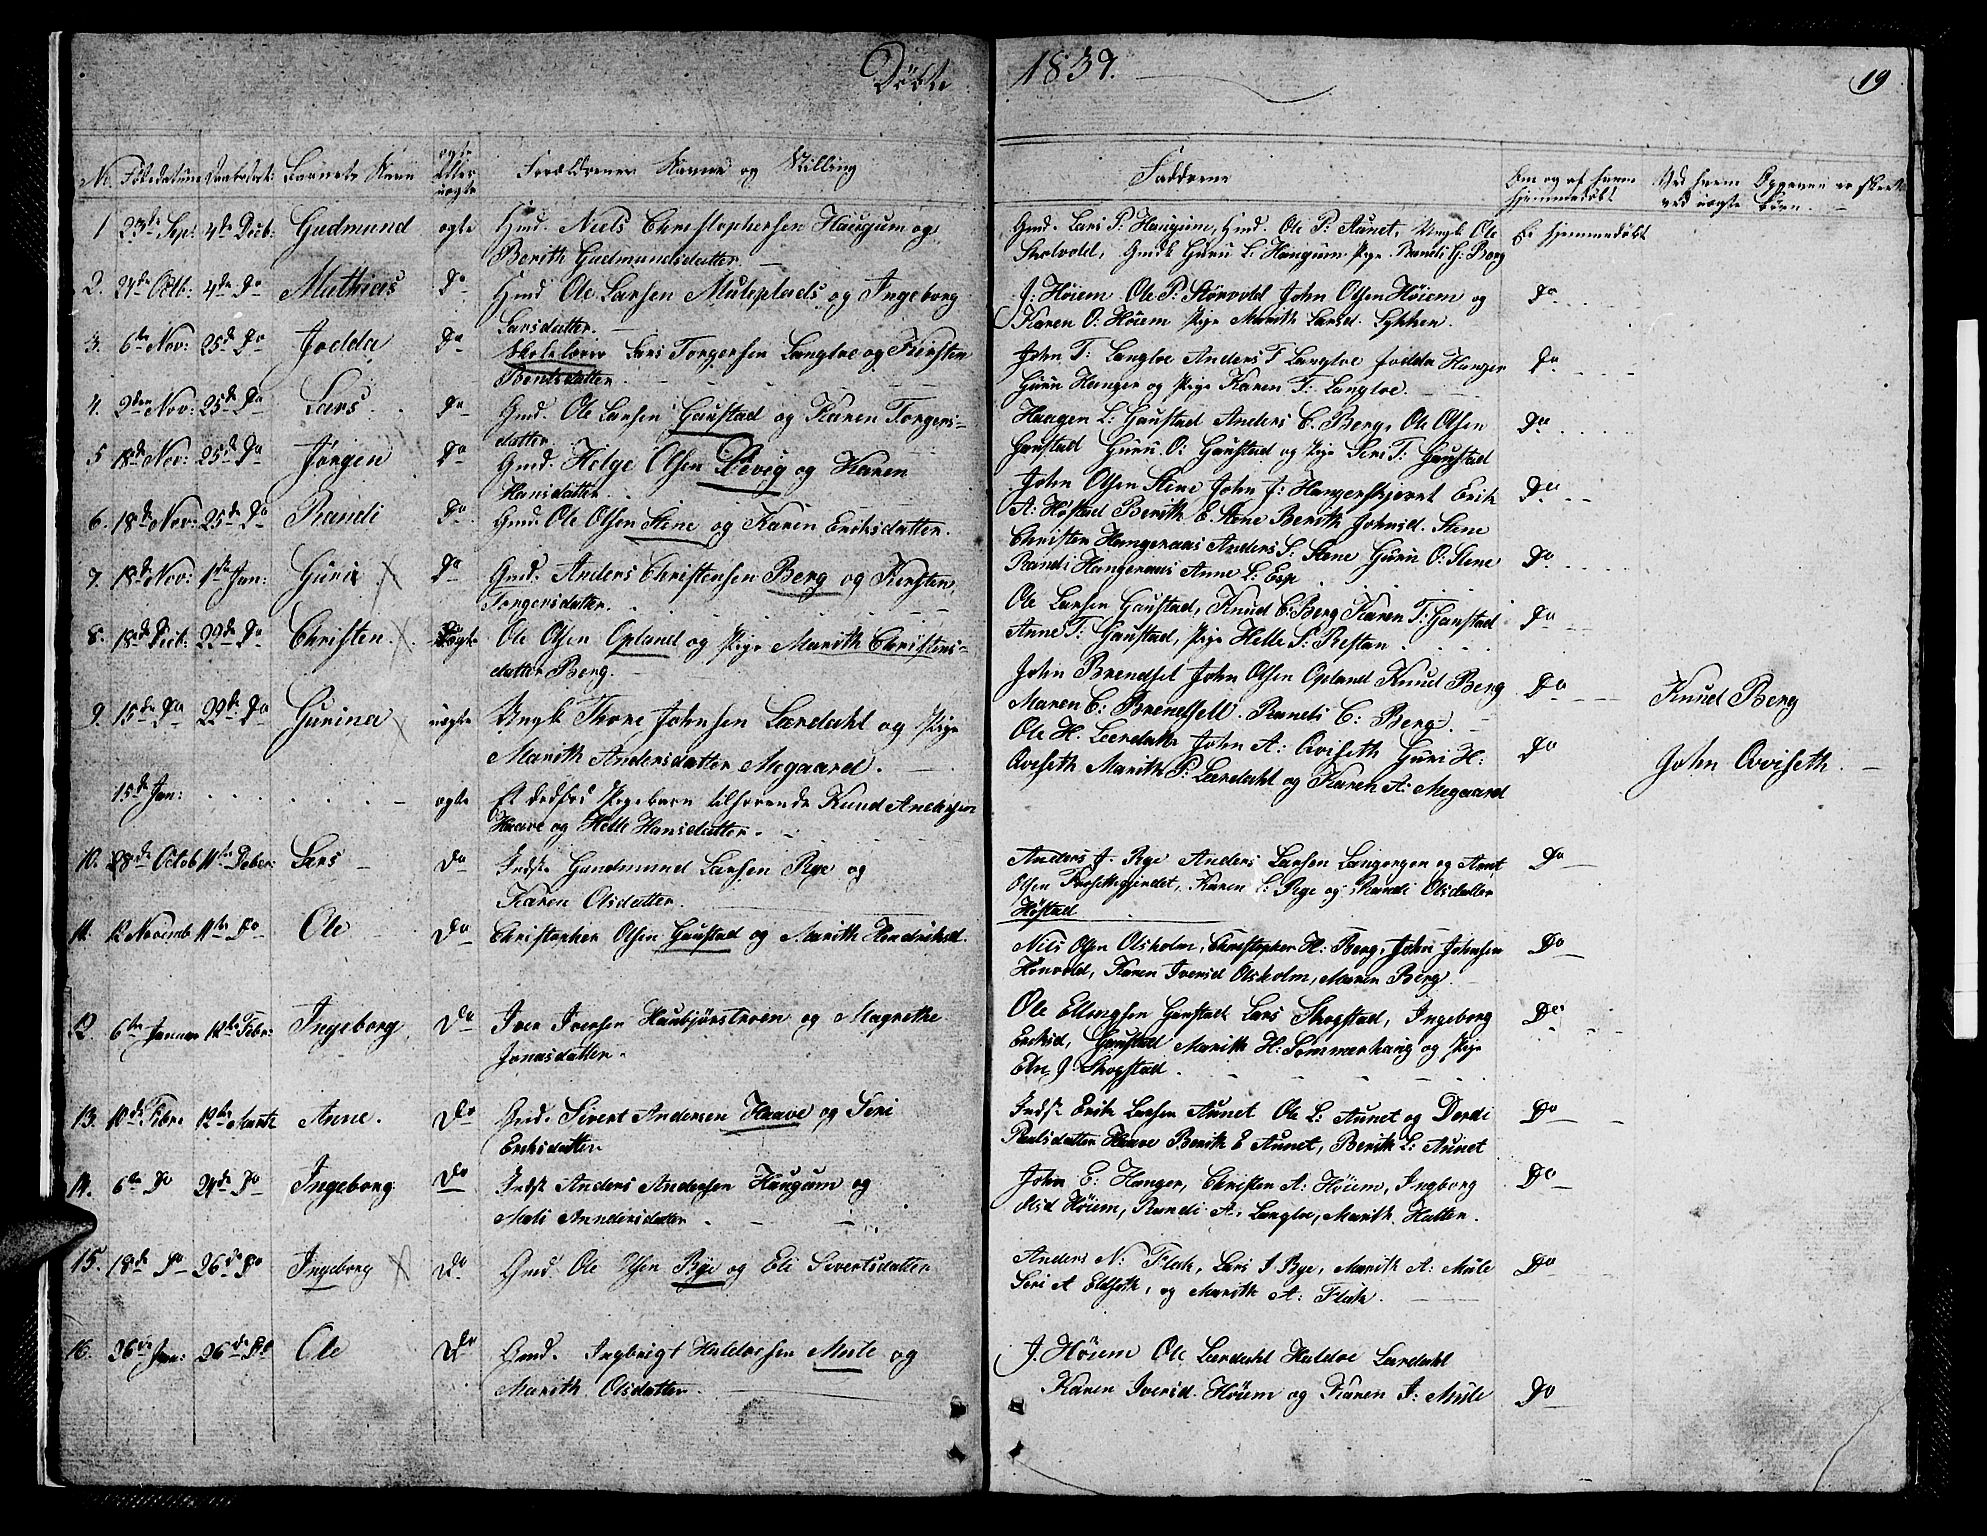 Döbte 1839.
19
No. Födedatum Daabsdat: Barnets Navn ægte eller uægte Forældrenes Navne og Stilling Faddrene Om og af hvem hjemmedöbt Ved hvem Opgaven er skeet ved uægte Börn.
1 23de Sep: 4de Decb: Gudmund ægte Gmd. Niels Christophersen Haugum og
Berith Gudmundsdatter.
Gmd. Lars P: Haugum, Gmd. Ole P: Aunet, Ungk Ole
Skolvold, Gmdk Guru L: Haugum Pige Randi G: Berg
Ei hjemmedöbt
2. 24de Octb: 4de Do Mathias Do Hmd Ole Larsen Muleplads og Ingeborg
Larsdatter.
J: Höiem Ole P: Störvold John Olsen Höiem og
Karen O: Höiem Pige Marith Larsd. Lykken.
Do
3. 6te Nov: 25de Do Jodda Do Skolelærer Lars Torgersen Langloe og Kirsten
Bentsdatter.
John T: Langloe Anders T Langloe Jodda Hanger
Guru Hanger og Pige Karen T: Langloe.
Do
4. 9den Nov: 25de Do Lars Do Gmd. Ole Larsen Gaustad og Karen Torgers-
datter
Haagen L: Gaustad Anders C. Berg, Ole Olsen
Gaustad Guru O: Gaustad og Pige Seri T: Gaustad
Do
5 18de Nov: 25de Do Jörgen Do Gmd. Helge Olsen Devig og Karen
Hansdatter.
John Olsen Stene John J: Hangerskjeret Erik
A: Höstad Berith E. Stene Berith Johnsd. Stene
Do
6. 18de Nov: 25de Do Randi Do Gmd. Ole Olsen Stene og Karen Eriksdatter.
Christen Hangeraas Anders S: Stene Guru O: Stene
Randi Hangeraas Anne L: Esp
Do
7. 18de Nov: 1ste Jan: Guri Do Gmd. Anders Christensen Berg og Kirsten
Torgersdatter.
Ole Larsen Gaustad, Knud C: Berg Karen T: Gaustad
Anne T: Gaustad, Pige Helle S: Restan
Do
8. 18de Dect: 22de Do Christen uægte Ole Olsen Opland og Pige Marith Christens-
datter Berg.
John Brendsel John Olsen Opland Knud Berg
Maren C: Brendsell. Randi C: Berg.
Do Knud Berg
9. 15de Do 22de Do Gurina uægte Ungk Thore Johnsen Lerdahl og Pige
Marith Andersdatter Megaard.
Ole H. Lerdahl John A: Qviseth Guri H:
Qviseth Marith P: Lerdahl og Karen A: Megaard
Do John Qviseth.
15de Jan: ægte Et dödfód Pigebarn tilhørende Knud Andersen
Haave og Helle Hansdatter.
10. 28de Octob 11te Feber: Lars Do Indst. Gundmund Larsen Rye og
Karen Olsdatter.
Anders J. Rye Anders Larsen Langorgen og Arnt
Olsen, Karen L: Rye og Randi Olsdatter
Höstad
Do
11. 12 Novemb 11te Do Ole Do Christopher Olsen Gaustad og Marith Hendriksd.
Nils Olsen Olsholm, Christopher H: Berg, John Johnsen
Hönvold, Karen Iversd Olsholm, Maren Berg.
Do
12. 6te Januar 12te Febr: Ingeborg Do Iver Iversen Haubjörstroen og Magrethe
Jonasdatter.
Ole Ellingsen Gaustad Lars Skogstad, Ingeborg
Eriksd, Gaustad Marith H: Sommerhaug og Pige
Eln J: Skogstad.
Do
13. 10de Febr 12te Marts Anne. Do Gmd. Sivert Andersen Haave og Seri
Eriksdatter
Indst Erik Larsen Aunet Ole L: Aunet og Dordi
Paulsdatter Haave Berith E Aunet, Berith L: Aunet
Do
14. 6te Do 24de Do Ingeborg Do Indst Anders Andersen Haugum og
Mali Anndersdatter.
John E: Hanger, Christen A: Höiem, Ingborg
Olsd Höiem, Randi A: Langloe, Marith Halten.
Do
15. 18de Do 26de Do Ingeborg Do Gmd. Ole Olsen Rye og Eli Sivertsdatter
Anders N: Flak, Lars I Rye, Marith A: Mule
Seri A Eldseth, og Marith A: Flak.
Do
16. 26de Jan: 26de Do Ole Do Gmd. Ingbrigt Haldorsen Mule og
Marith Olsdatter.
J. Höiem Ole Lerdahl Haldoe Lerdahl
Karen Iversd. Höiem og Karen I: Mule
Do